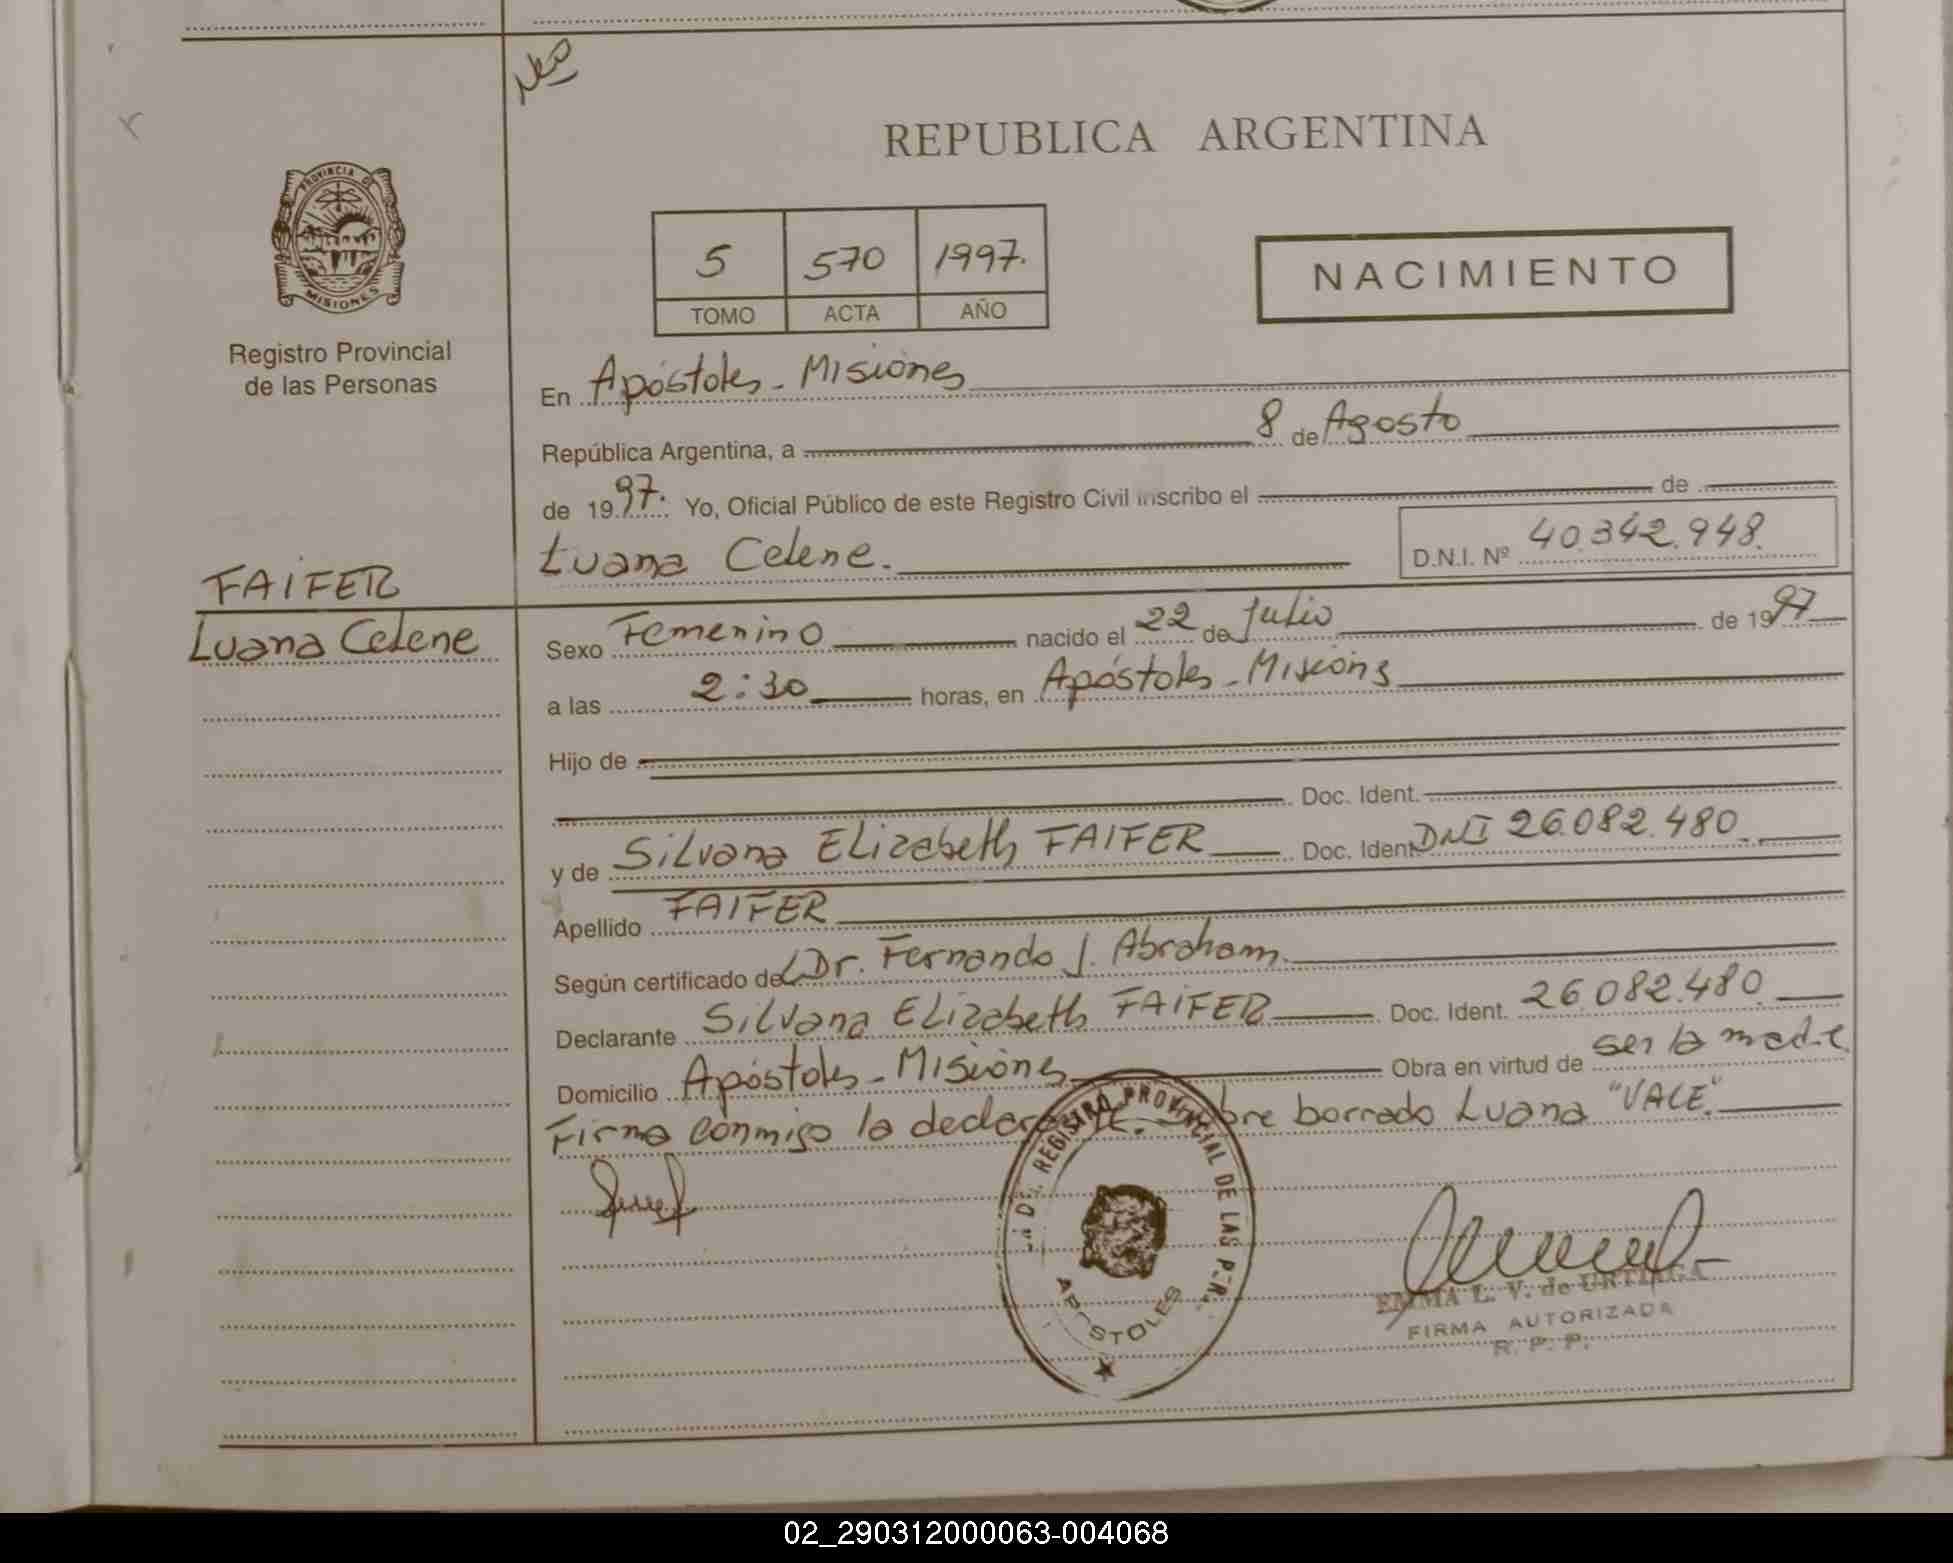 PROVINCIA DE
MISIONES
Registro Provincial
de las Personas
FAIFER
Luana Celene
REPUBLICA ARGENTINA
5 570 1997.
TOMO ACTA AÑO
NACIMIENTO
En Apóstoles - Misiones
República Argentina, a 8 de Agosto
de 1997. Yo, Oficial Público de este Registro Civil inscribo el de
Luana Celene. D.N.I. Nº 40.342.948.
Sexo Femenino nacido el 22 de Julio de 1997
a las 2:30 horas, en Apóstoles - Misiones
Hijo de
Doc. Ident.
y de Silvana Elizabeth FAIFER Doc. Ident. DNI 26.082.480.
Apellido FAIFER
Según certificado del Dr. Fernando J. Abraham.
Declarante Silvana Elizabeth FAIFER Doc. Ident. 26.082.480.
Domicilio Apóstoles - Misiones Obra en virtud de ser la madre.
Firma conmigo la declarante. Sobre borrado Luana "VALE".
REGISTRO PROVINCIAL DE LAS PER.
APOSTOLES
EMMA L. V. de URTIAGA
FIRMA AUTORIZADA
R. P. P.
02_290312000063-004068